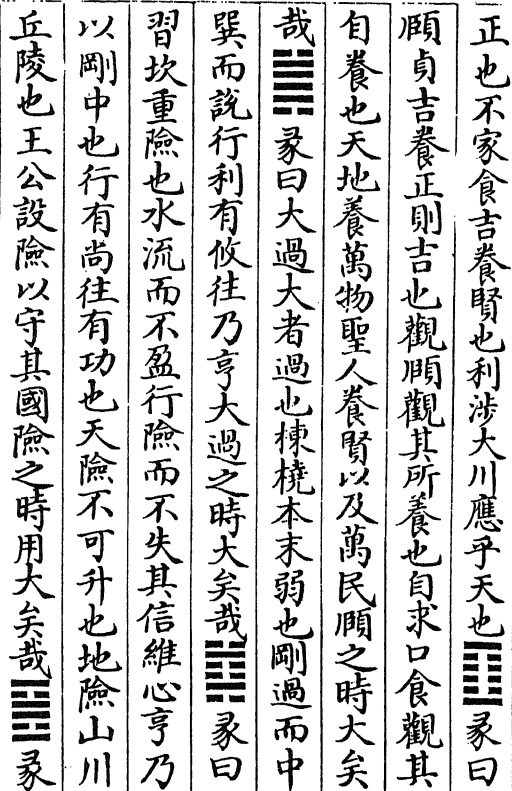 正也不家食吉養賢也利涉大川應乎天也䷚彖曰
頤貞吉養正則吉也觀頤觀其所養也自求口食觀其
自養也天地養萬物聖人養賢以及萬民頤之時大矣
哉䷛彖曰大過大者過也棟橈本末弱也剛過而中
巽而說行利有攸往乃亨大過之時大矣哉䷜彖曰
習坎重險也水流而不盈行險而不失其信維心亨乃
以剛中也行有尚往有功也天險不可升也地險山川
丘陵也王公設險以守其國險之時用大矣哉䷝彖